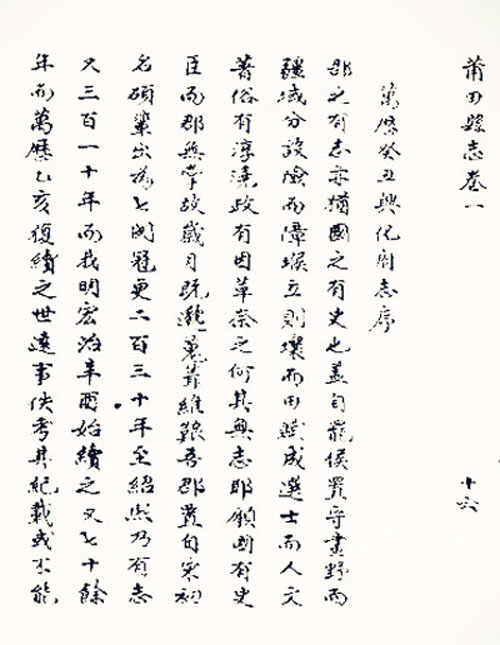 莆田縣志卷一
十六
萬歷癸丑興化府志序
郡之有志亦猶國之有史也蓋自罷侯置守畫野而
疆域分設險而障堠立則壤而田賦成選士而人文
著俗有淳澆政有因革柰之何其無志耶顧國有史
臣而郡無掌故歲月既 蒐葺維艱吾郡置自宋初
名碩輩出為七閩冠更二百三十年至紹熙乃有志
又三百一十年而我明宏治辛酉始續之又七十餘
年而萬歷乙亥復續之世遠事佚考其紀載或不能